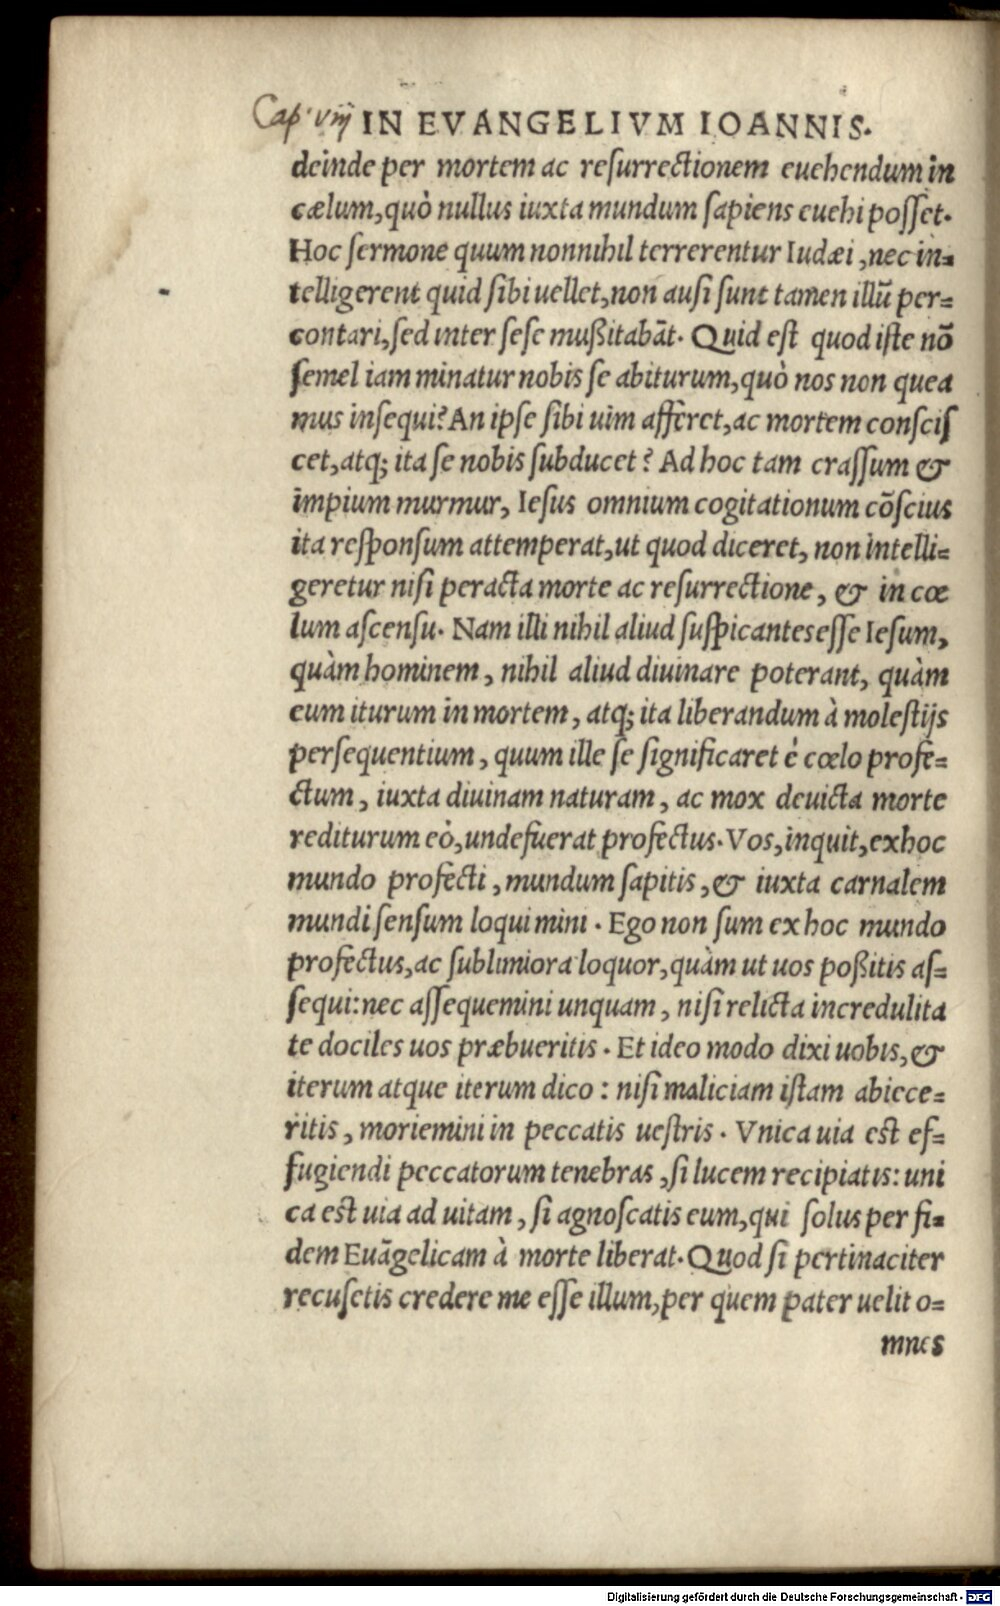 Cap. viij IN EVANGELIVM IOANNIS.
deinde per mortem ac reſurrectionem euehendum in
cælum, quò nullus iuxta mundum ſapiens euehi poſſet.
Hoc ſermone quum nonnihil terrerentur Iudæi, nec in=
telligerent quid ſibi uellet, non auſi ſunt tamen illũ per=
contari, ſed inter ſeſe mußitabãt. Quid eſt quod iſte nõ
ſemel iam minatur nobis ſe abiturum, quò nos non quea
mus inſequi? An ipſe ſibi uim afferet, ac mortem conſciſ
cet, atq; ita ſe nobis ſubducet? Ad hoc tam craſſum &
impium murmur, Ieſus omnium cogitationum cõſcius
ita reſponſum attemperat, ut quod diceret, non intelli=
geretur niſi peracta morte ac reſurrectione, & in cœ
lum aſcenſu. Nam illi nihil aliud ſuſpicantes eſſe Ieſum,
quàm hominem, nihil aliud diuinare poterant, quàm
eum iturum in mortem, atq; ita liberandum à moleſtijs
perſequentium, quum ille ſe ſignificaret è cœlo profe=
ctum, iuxta diuinam naturam, ac mox deuicta morte
rediturum eò, unde fuerat profectus. Vos, inquit, ex hoc
mundo profecti, mundum ſapitis, & iuxta carnalem
mundi ſenſum loquimini. Ego non ſum ex hoc mundo
profectus, ac ſublimiora loquor, quàm ut uos poßitis aſ=
ſequi: nec aſſequemini unquam, niſi relicta incredulita
te dociles uos præbueritis. Et ideo modo dixi uobis, &
iterum atque iterum dico: niſi maliciam iſtam abiece=
ritis, moriemini in peccatis ueſtris. Vnica uia eſt ef=
fugiendi peccatorum tenebras, ſi lucem recipiatis: uni
ca eſt uia ad uitam, ſi agnoſcatis eum, qui ſolus per fi=
dem Euãgelicam à morte liberat. Quod ſi pertinaciter
recuſetis credere me eſſe illum, per quem pater uelit o=
mnes
Digitalisierung gefördert durch die Deutsche Forschungsgemeinschaft - DFG